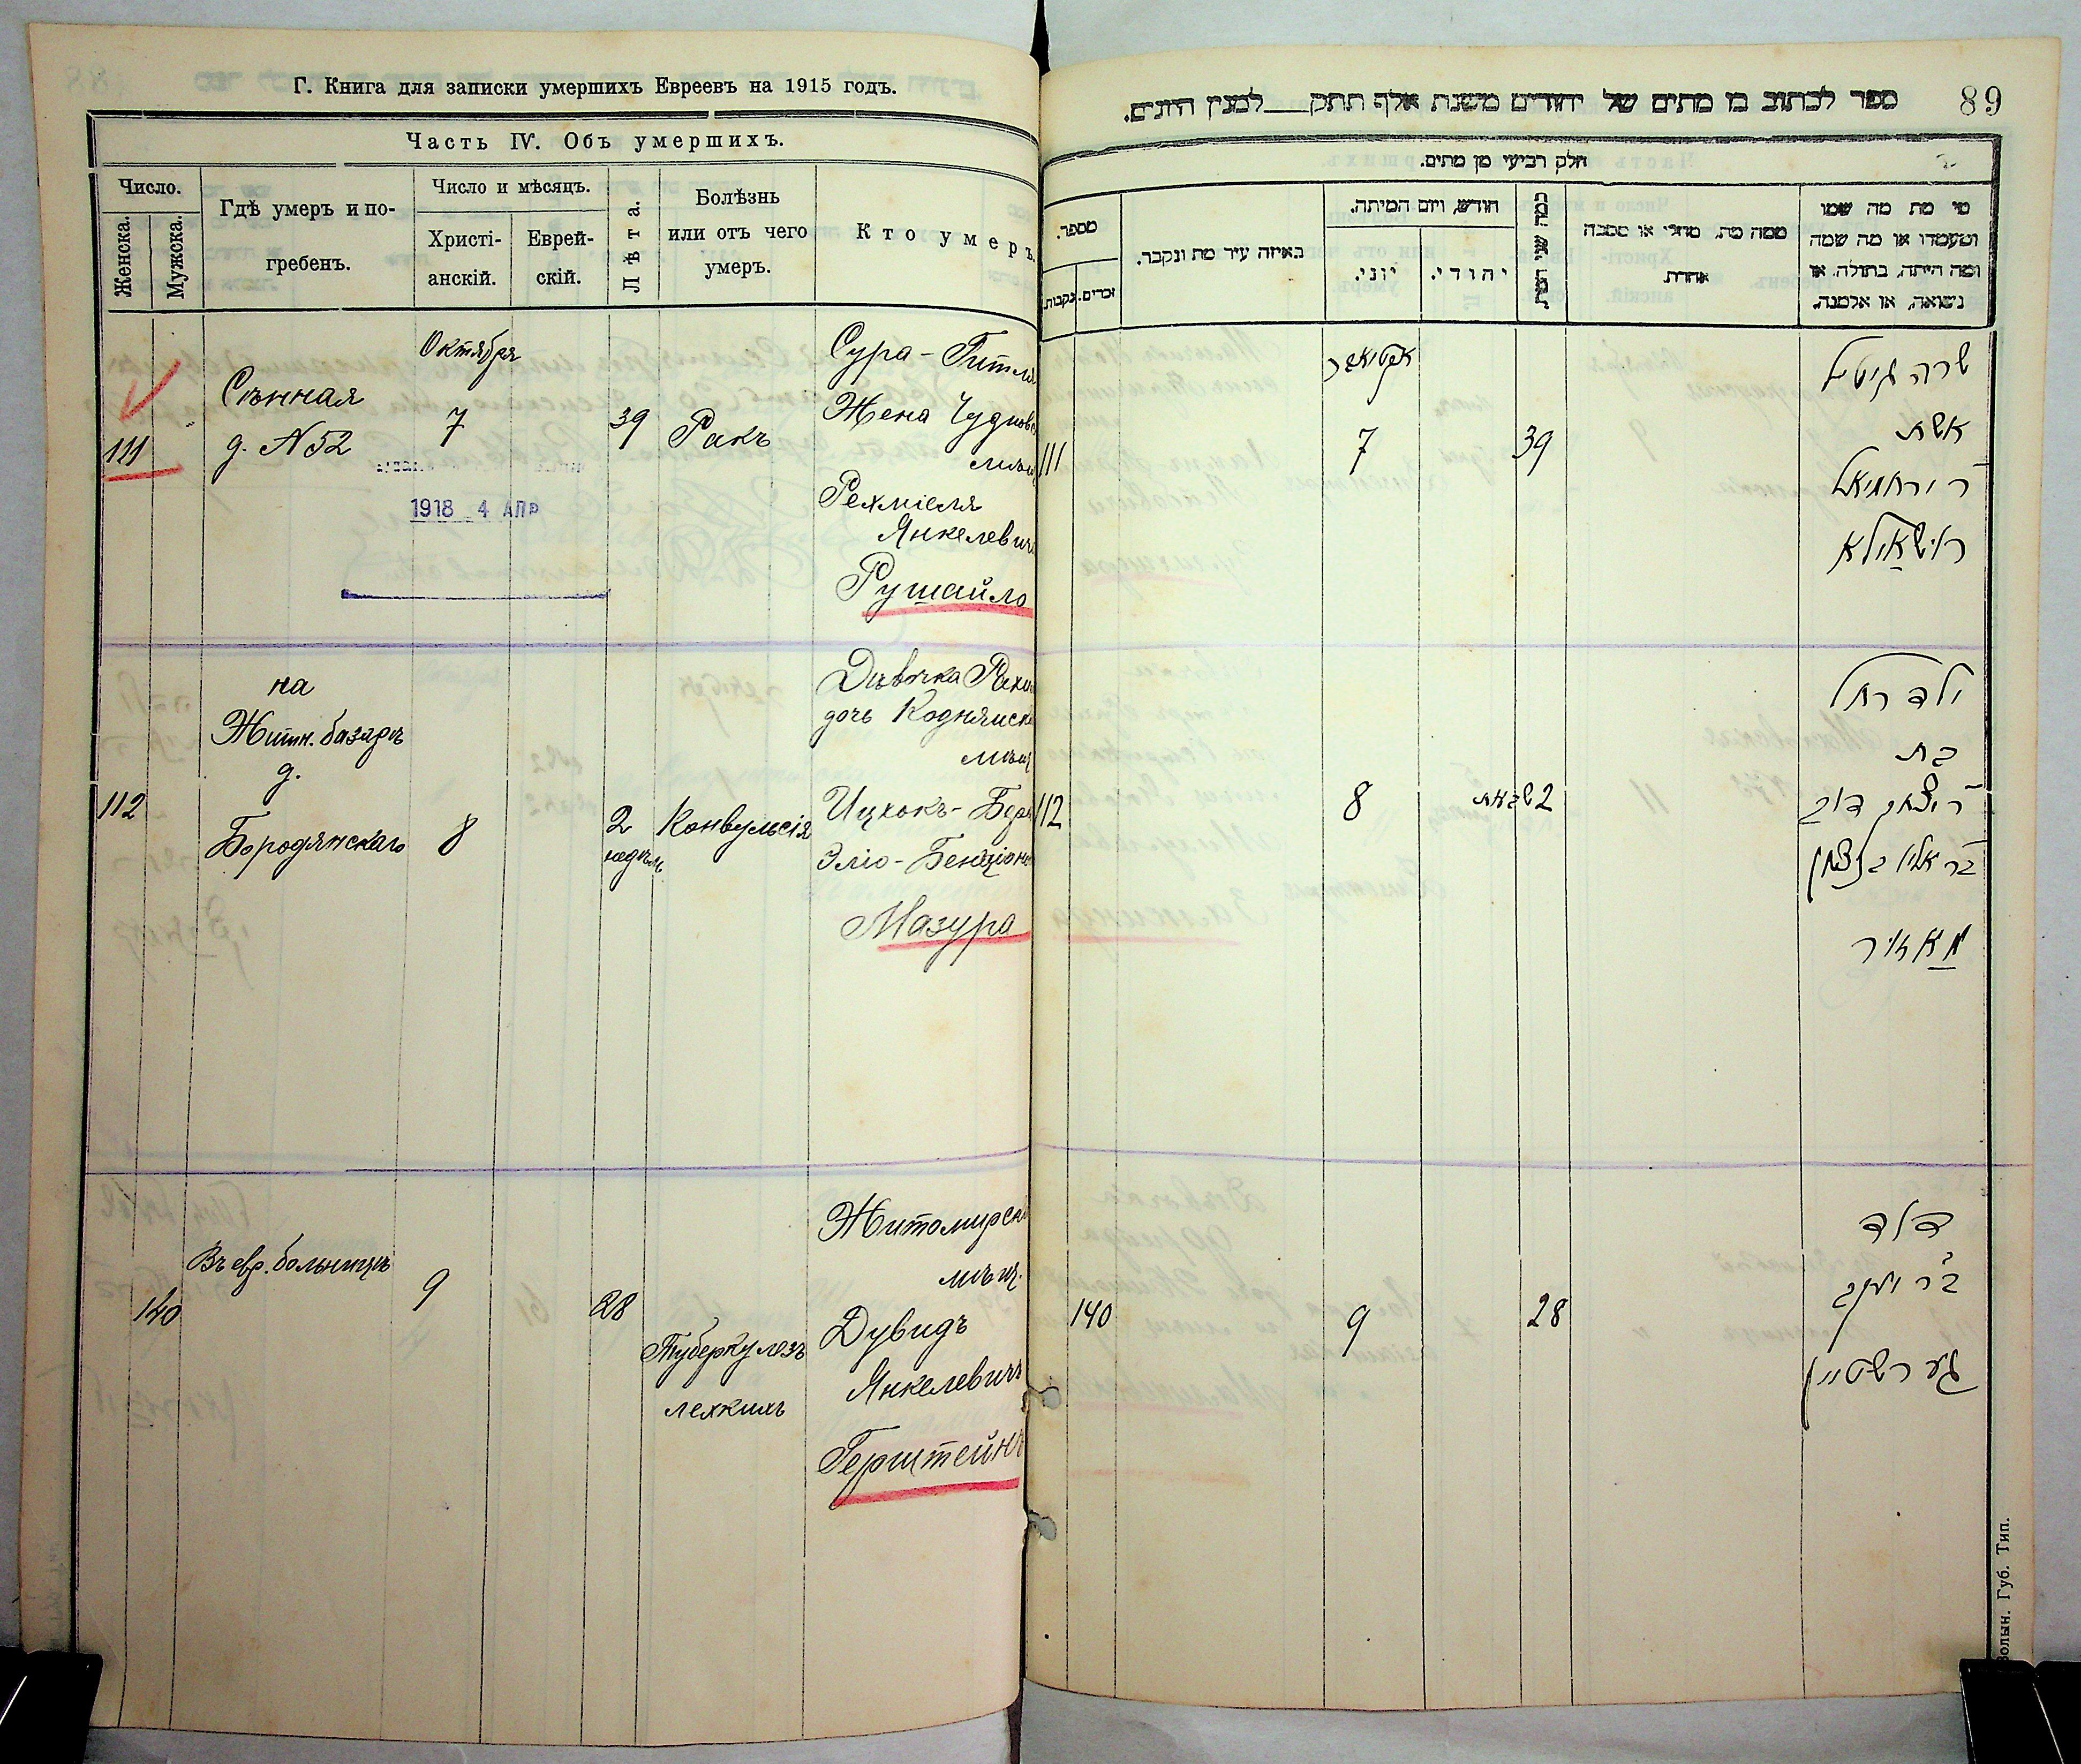 Г. Книга для записки умершихъ Евреевъ на 1915 годъ.
Часть IV. Объ умершихъ.
Число.
Женска.
Мужска.
Гдѣ умеръ и по-
гребенъ.
Число и мѣсяцъ.
Христі-
анскій.
Еврей-
скій.
Лѣта.
Болѣзнь
или отъ чего
умеръ.
Кто умеръ.
111
Сѣнная
д. N 52
Октября
7
1918 4 АПР
39
Ракъ
Сура-Гитля
Жена Чудновс
мѣщ
Рехміеля
Янкелевича
Рушайло
112
на
Житн. базарѣ
д.
Бородянскаго
8
2
недѣли
Конвульсія
Дѣвочка Рахиль
дочь Коднянск
мѣщ
Ицхокъ-Бера
Эліо-Бенціонов
Мазура
140
Въ евр. больницѣ
9
28
Туберкулезъ
легкихъ
Житомирскій
мѣщ.
Дувидъ
Янкелевичъ
Герштейнъ
89
ספר לכתוב בו מתים של יהודים משנת אלף תתק למנין היונים.
חלק רביעי מן מתים.
מספר.
נקבות.
זכרים.
באיזה עיר מת ונקבר.
חודש, ויום המיתה.
יוני.
יהודי.
כמה שני המת
ממה מת, מחלי או מסבה
אחרת
מי מת מה שמו
ומעמדו או מה שמה
ומה היתה, בתולה, או
נשואה, או אלמנה.
111
אקטאבר
7
39
שרה גיטיל
אשת
ר ירחמיאל
רושאילא
112
8
2 שבועות
ילד רחל
בת
ר יצחק דוב
בר אליו בנציון
מאזור
140
9
28
דוד
בר יעקב
גערשטיין
Волын. Губ. Тип.